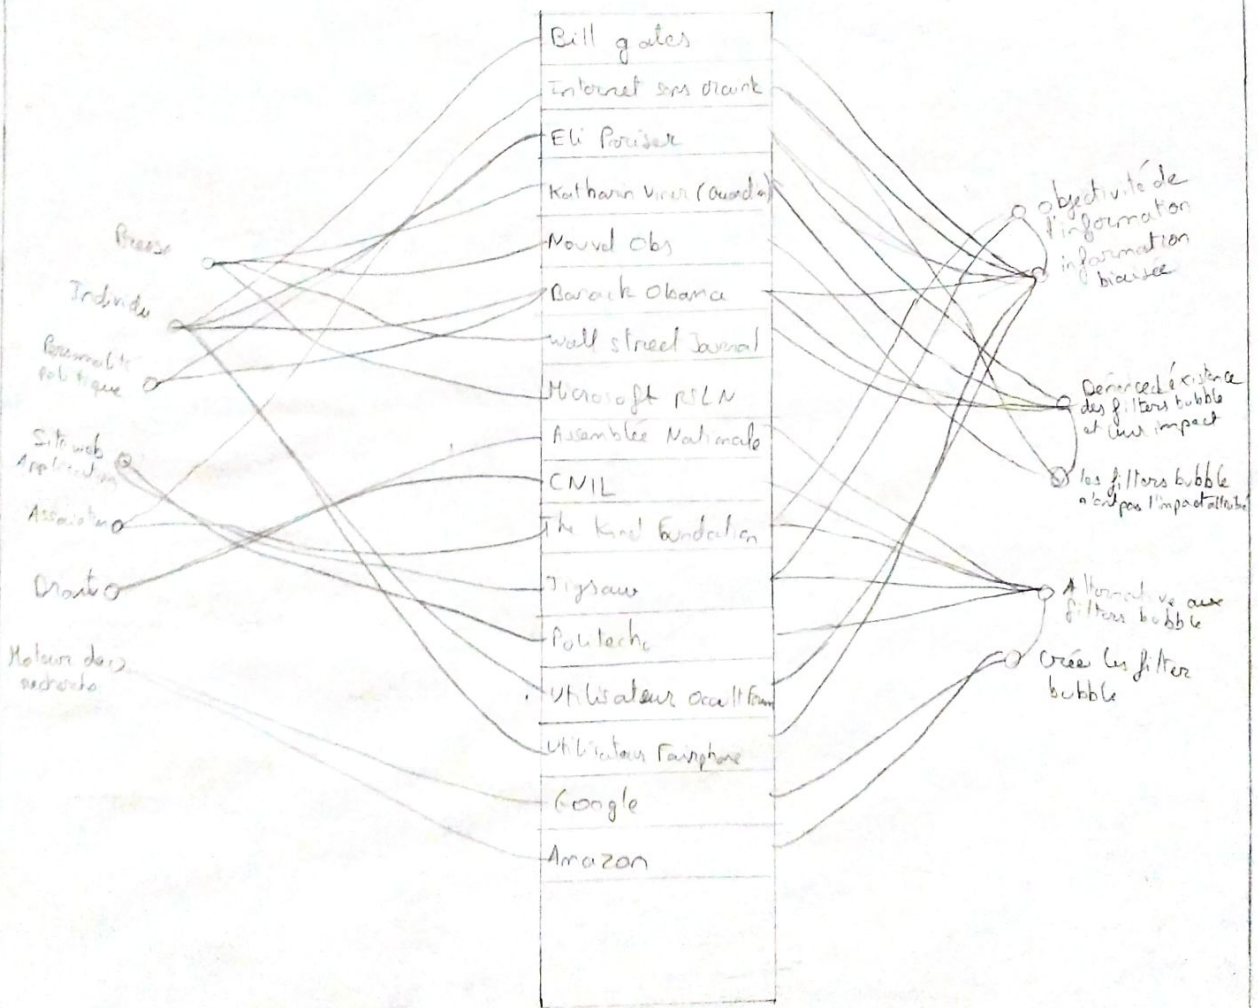 Presse
Individu
Personnalité
politique
Site web
Application
Association
Droite
Moteur de
recherche
Bill gates
Internet sans crainte
Eli Pariser
Katharin Viner (Guardian)
Nouvel Obs
Barack Obama
Wall street Journal
Microsoft RSLN
Assemblée Nationale
CNIL
The Kind Foundation
Jigsaw
Politecho
Utilisateur Occult Forum
Utilisateur Fairphone
Google
Amazon
Objectivité de
l'information
information
biaisée
existance
des filters bubble
et leur impact
les filters bubble
n'ont pas l'impact attribué
Alternative aux
filters bubble
Crée les filter
bubble